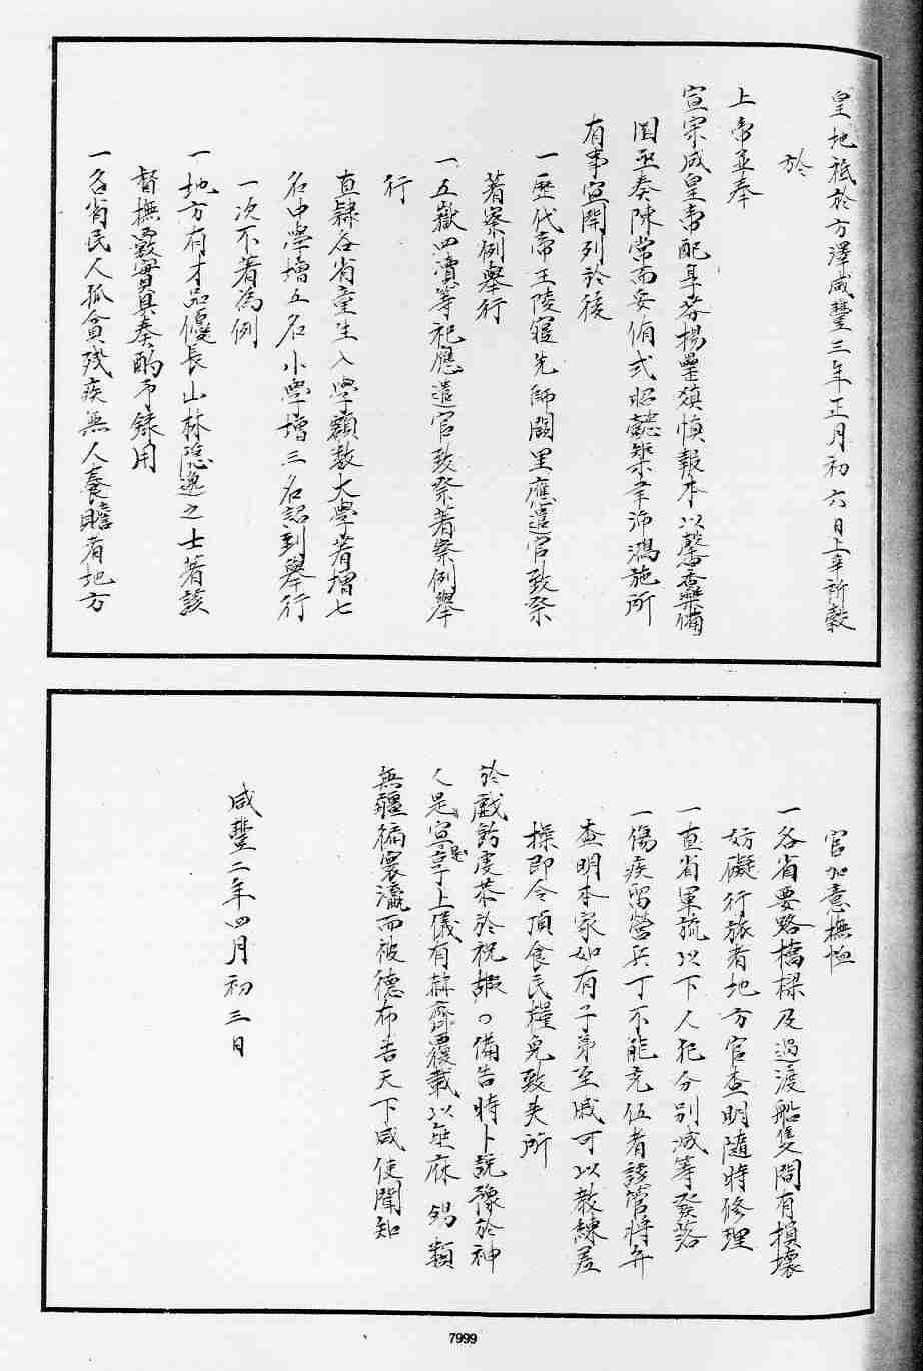 皇地祗於方澤咸豐三年正月初六日上辛祈穀
於
上帝並奉
宣宗成皇帝配享孝揚疊矧慎報本以馨香樂備
圜丘奏陳常而妥侑式昭懿鑠聿沛鴻施所
有事宜開列於後
一歷代帝王陵寢先師闕里應遣官致祭
著察例舉行
一五嶽四瀆等祀應遣官致祭著察例舉
行
直隸各省童生入學額數大學著增七
名中學增五名小學增三名詔到舉行
一次不著為例
一地方有才品優長山林隱逸之士著該
督撫覈實具奏酌予錄用
一各省民人孤貧殘疾無人養贍者地方
官加意撫恤
一各省要路橋樑及過渡船隻間有損壞
妨礙行旅者地方官查明隨時修理
一直省軍流以下人犯分別減等發落
一傷疾留營兵丁不能充伍者該管將弁
查明本家如有子弟至戚可以教練差
操即令頂食民糧免致失所
於戲飭虔恭於祝嘏 備告時卜說豫於神
人是宣是享上儀有赫齊覆載以垂庥 錫類
無疆徧寰瀛而被德布告天下咸使聞知
咸豐二年四月初三日
7999